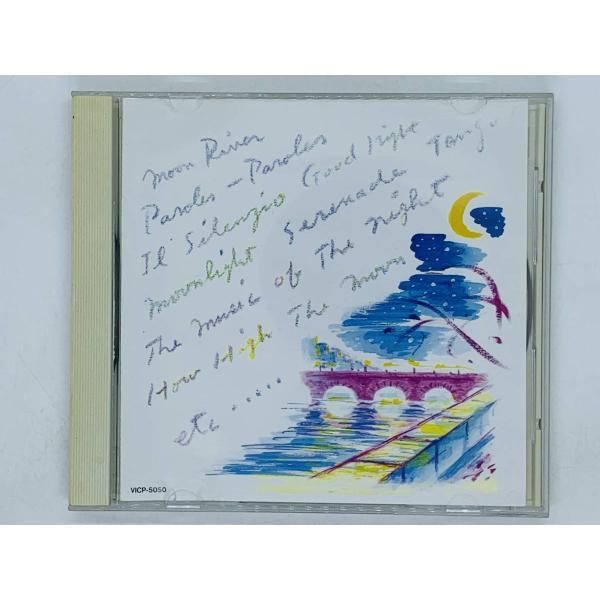 Moon River
Paroles - Paroles
Il Silenzio Good Night
Moonlight Serenade Tango
The Music of The night
How High The Moon
etc.....
VICP-5050